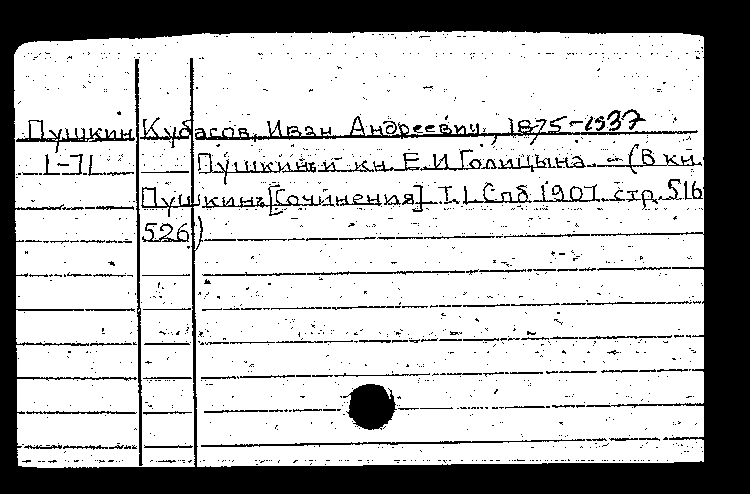 Пушкин Кубасов, Иван Андреевич, 1875-1937
1-71 Пушкинъ и кн. Е.И Голицына. – (В кн.
Пушкинъ [Сочинения] Т.I. Спб 1907 стр. 516
526)